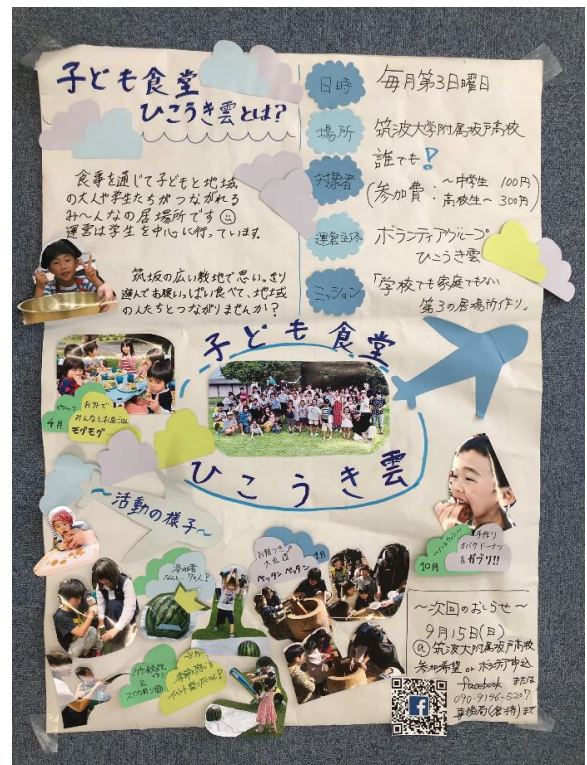 子ども食堂
ひこうき雲とは?
食事を通じて子どもと地域
の大人や学生たちがつながれる
み〜んなの居場所です
運営は学生を中心に行っています。
筑坂の広い敷地で思いっきり
遊んでお腹いっぱい食べて、地域
の人たちとつながりませんか?
日時 毎月第3日曜日
場所 筑波大学附属坂戸高校
対象者 誰でも!
(参加費: 〜中学生 100円
高校生〜 300円)
運営主体 ボランティアグループ
ひこうき雲
ミッション 「学校でも家庭でもない
第3の居場所作り」
子ども食堂
ひこうき雲
4月
お外で
みんなとお昼ごはん
モグモグ
〜活動の様子〜
参加者
なんと、70人?
お餅つき
大会
1月
ペッタン ペッタン
10月
手作り
オバケドーナツ
をガブリ!!
スイカ割り
季節を感じる
〜次回のおしらせ〜
9月15日(日)
@筑波大附属坂戸高校
参加希望 or ボランティア申込
facebook または
090-9156-5207
事務局(倉持)まで